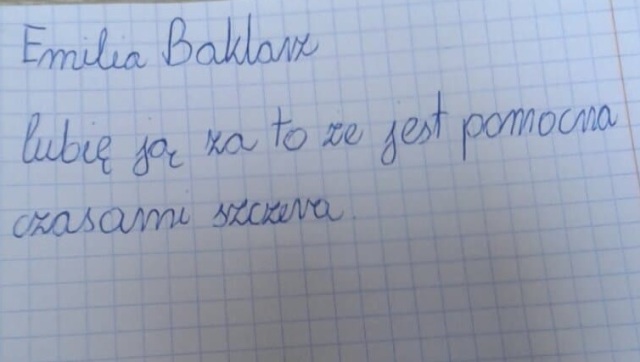 Emilia Baklarz
lubię ją za to ze jest pomocna
czasami szczera.